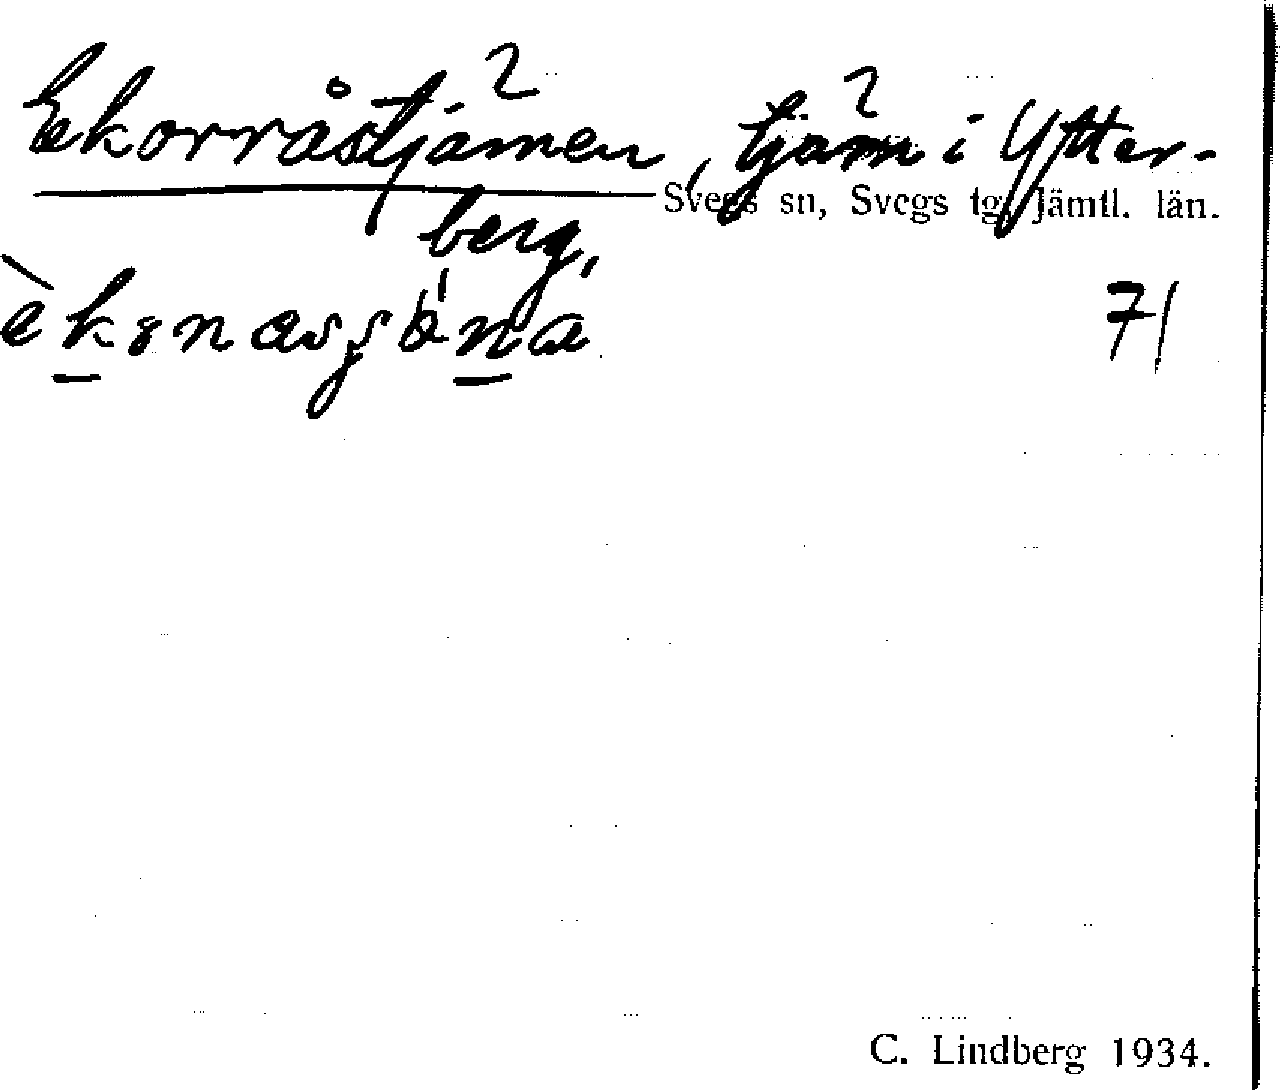 Ekorråstjärnen, tjärn i Ytter-
Svegs sn, Svegs tg, Jämtl. län.
berg,
71
C. Lindberg 1934.